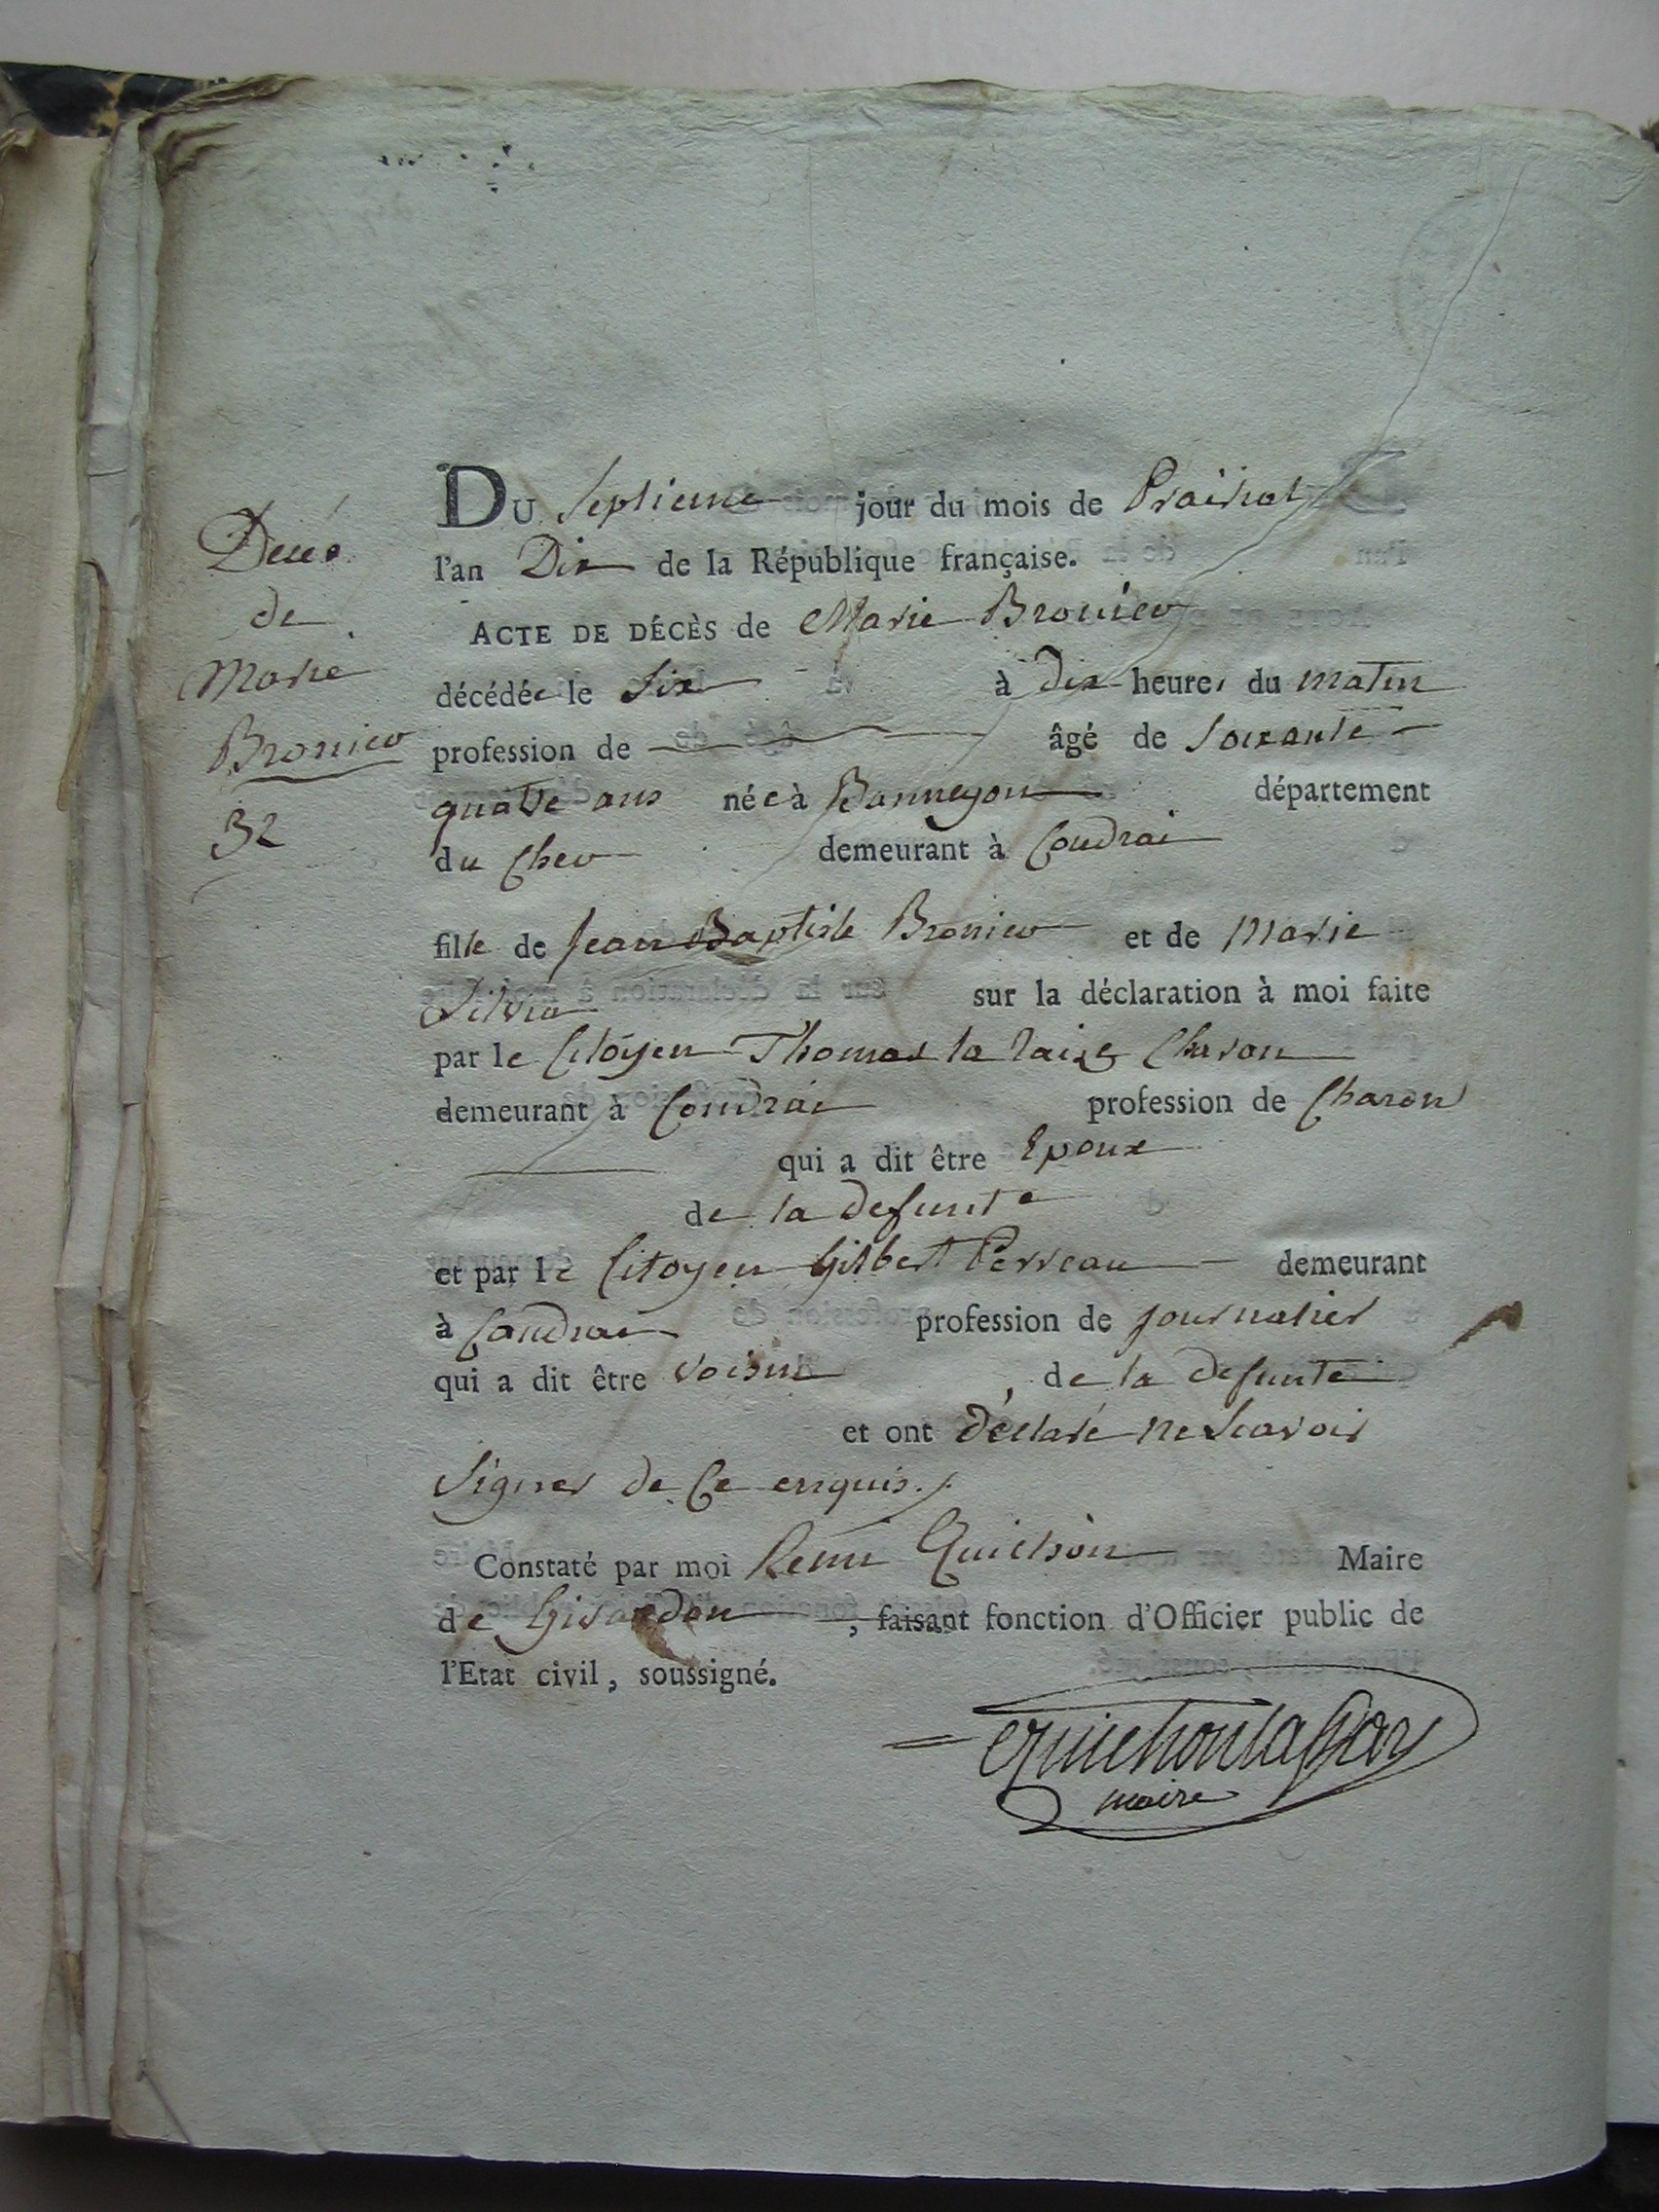 Décés
de
Marie
Bronier
32
DU Septieme jour du mois de Prairial
l'an Dix de la République française.
ACTE DE DÉCÈS de Marie Bronier
décédée le Six à dix heures du matin
profession de âgé de Soixante
quatre ans née à Bannegon département
du Cher demeurant à Coudrai
fille de Jean Baptiste Bronier et de Marie
sur la déclaration à moi faite
par le Citoyen Thomas la Charon
demeurant à Coudrai profession de Charon
qui a dit être Epoux
de la defunte
et par le Citoyen Gilbert Perreau demeurant
à Coudrai profession de journalier
qui a dit être voisin , de la defunte
et ont déclaré ne Scavoir
Signer de Ce enquis ./.
Constaté par moi Remi Quichon Maire
de Givardon , faisant fonction d'Officier public de
l'Etat civil, soussigné.
maire